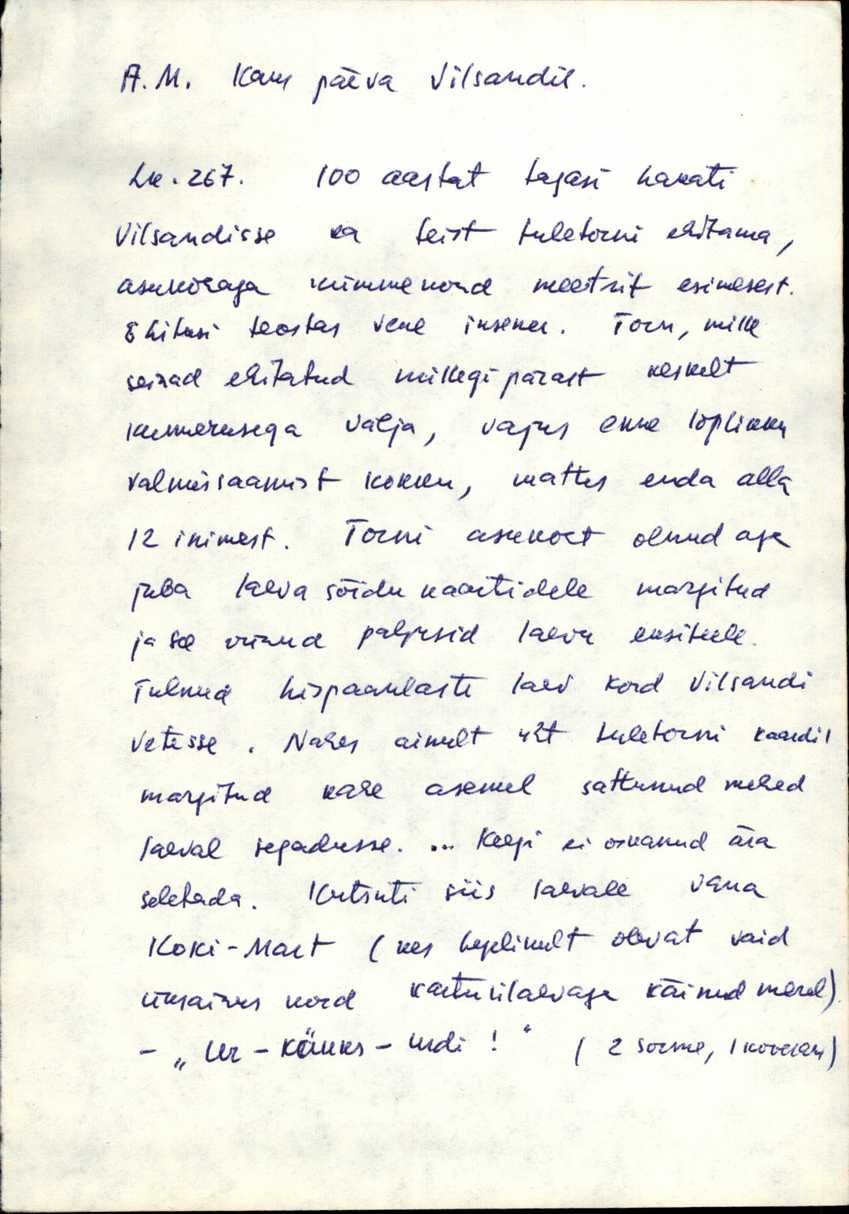 A.M. Kaks päeva Vilsandil.
Lk. 267. 100 aastat tagasi hakati
Vilsandisse ka teist tuletorni ehitama,
asukohaga kümmekond meetrit esimesest.
Ehitusi teostas vene insener. Torn, mille
seinad ehitatud millegipärast keskelt
kumerusega välja, vajus enne lõplikku
valmissaamist kokku, mattes enda alla
12 inimest. Torni asukoht olnud aga
juba laevasõidu kaartidele märgitud
ja see viinud paljusid laevu eksiteele.
Tulnud hispaanlaste laev kord Vilsandi
vetesse. Nähes ainult üht tuletorni kaardil
märgitud kahe asemel sattunud mehed
laeval segadusse. ... Keegi ei osanud ära
seletada. Kutsuti siis laevale vana
Koki-Mart (kes tegelikult olevat vaid
üksainus kord kartulilaevaga käinud merel)
- „ - - ! " (2 sõrme, 1 kõveram)